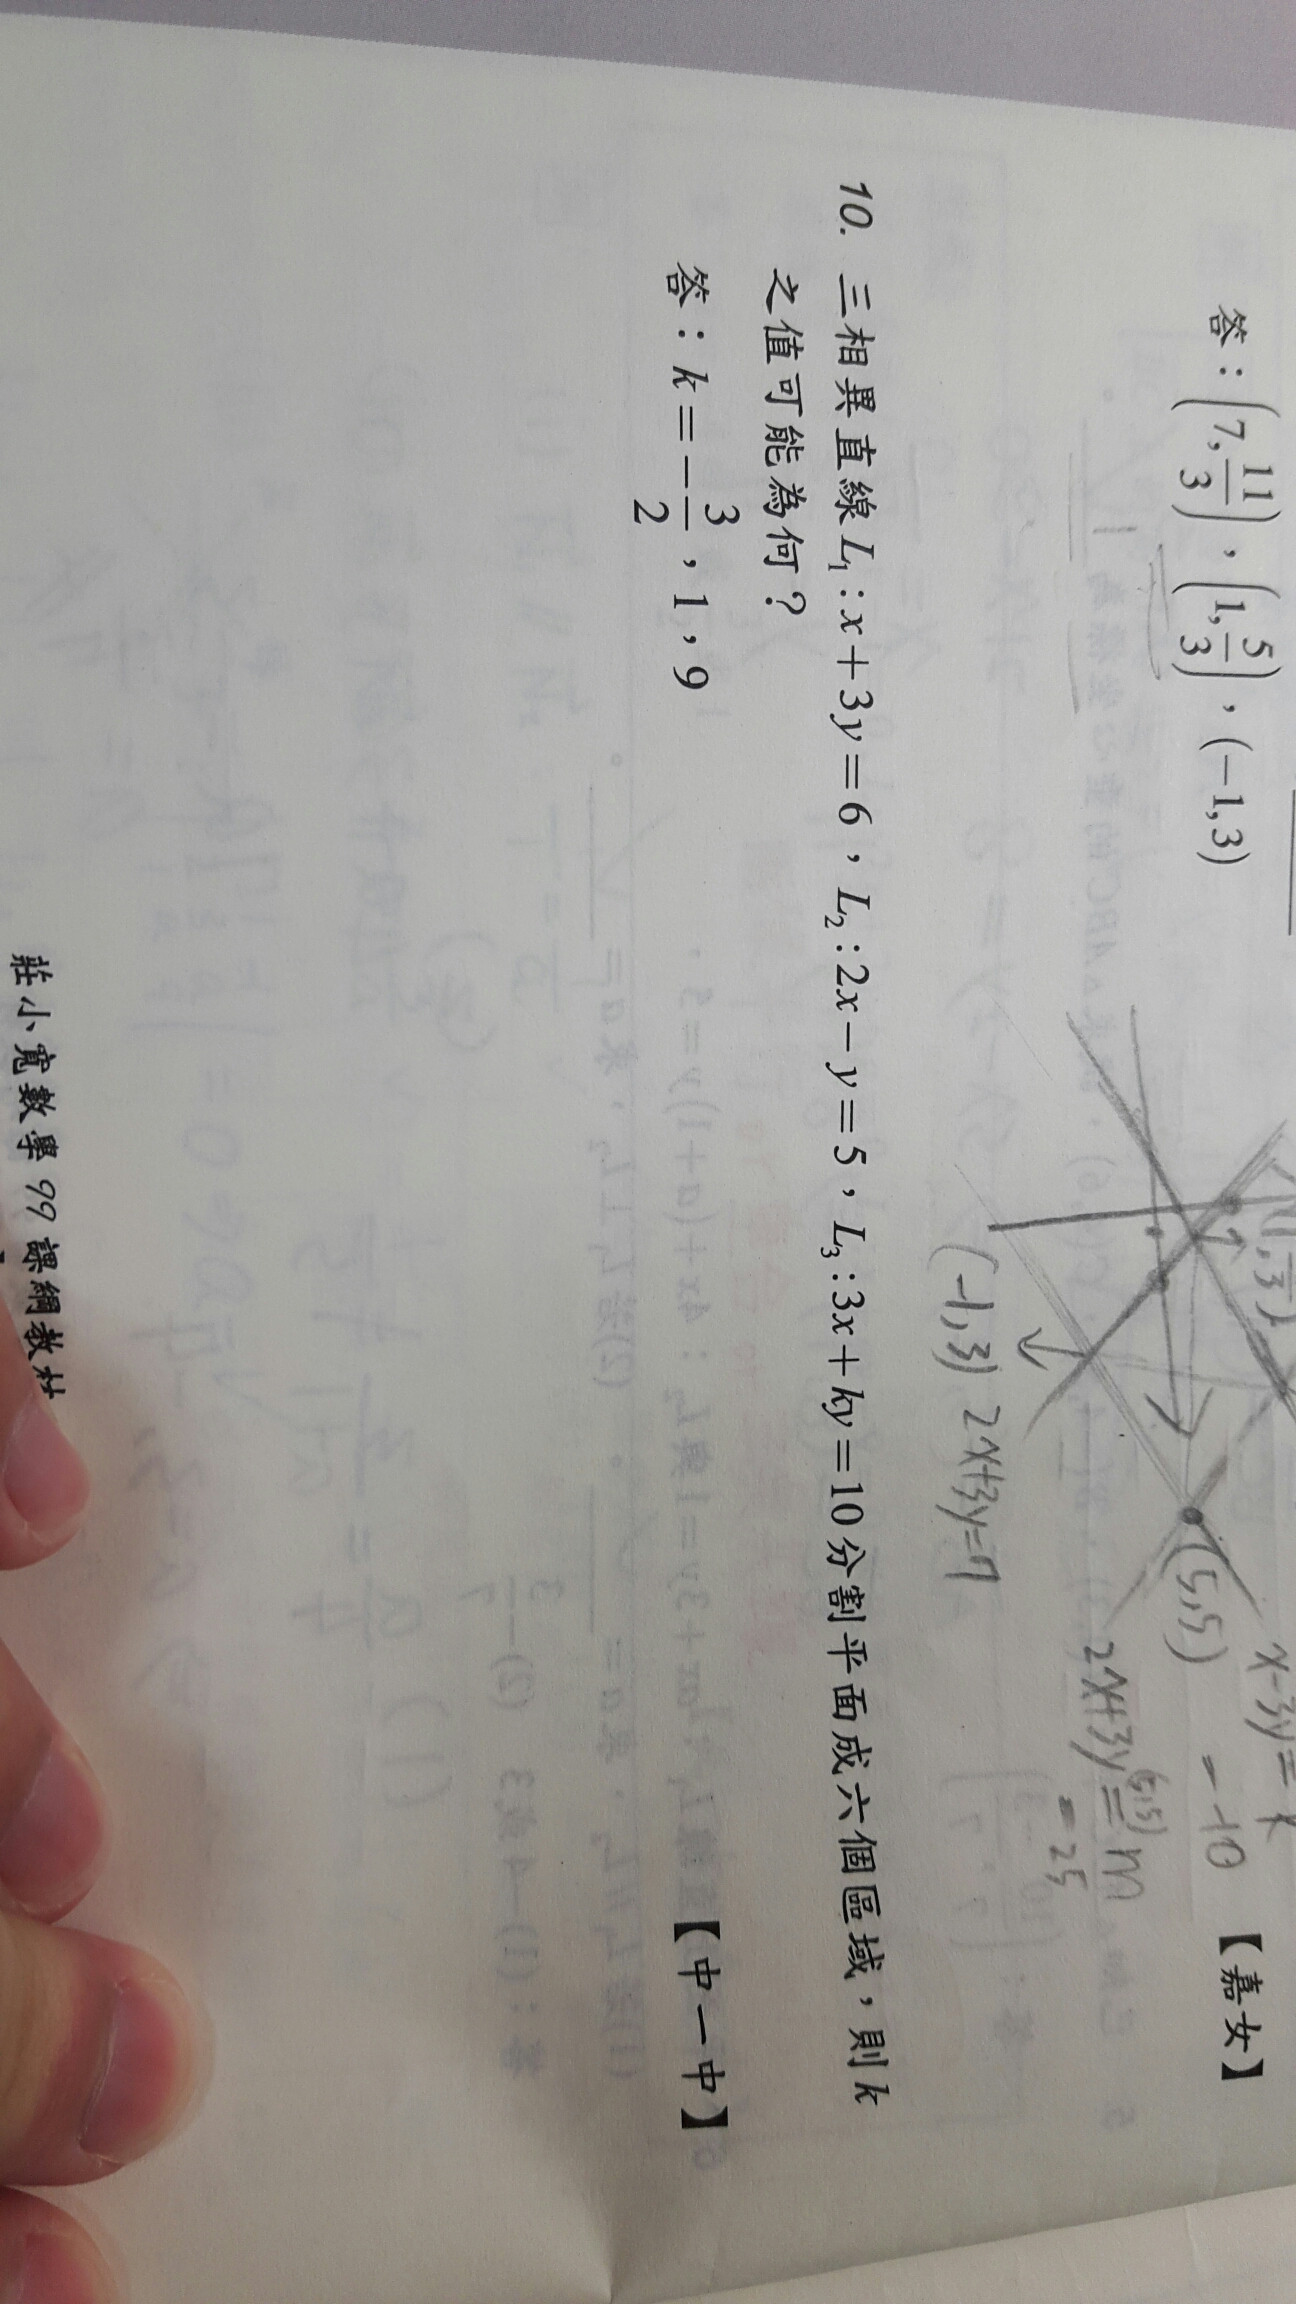 答：(7, 11/3)，(1, 5/3)，(−1,3)
【嘉女】
x−3y=k
=−10
(5,5)
2x+3y=m
(5,5)
=25
(−1,3) 2x+3y=7
10. 三相異直線 L₁：x+3y=6，L₂：2x−y=5，L₃：3x+ky=10 分割平面成六個區域，則 k
之值可能為何？
答：k=−3/2，1，9
【中一中】
莊小寬數學 99 課綱教材